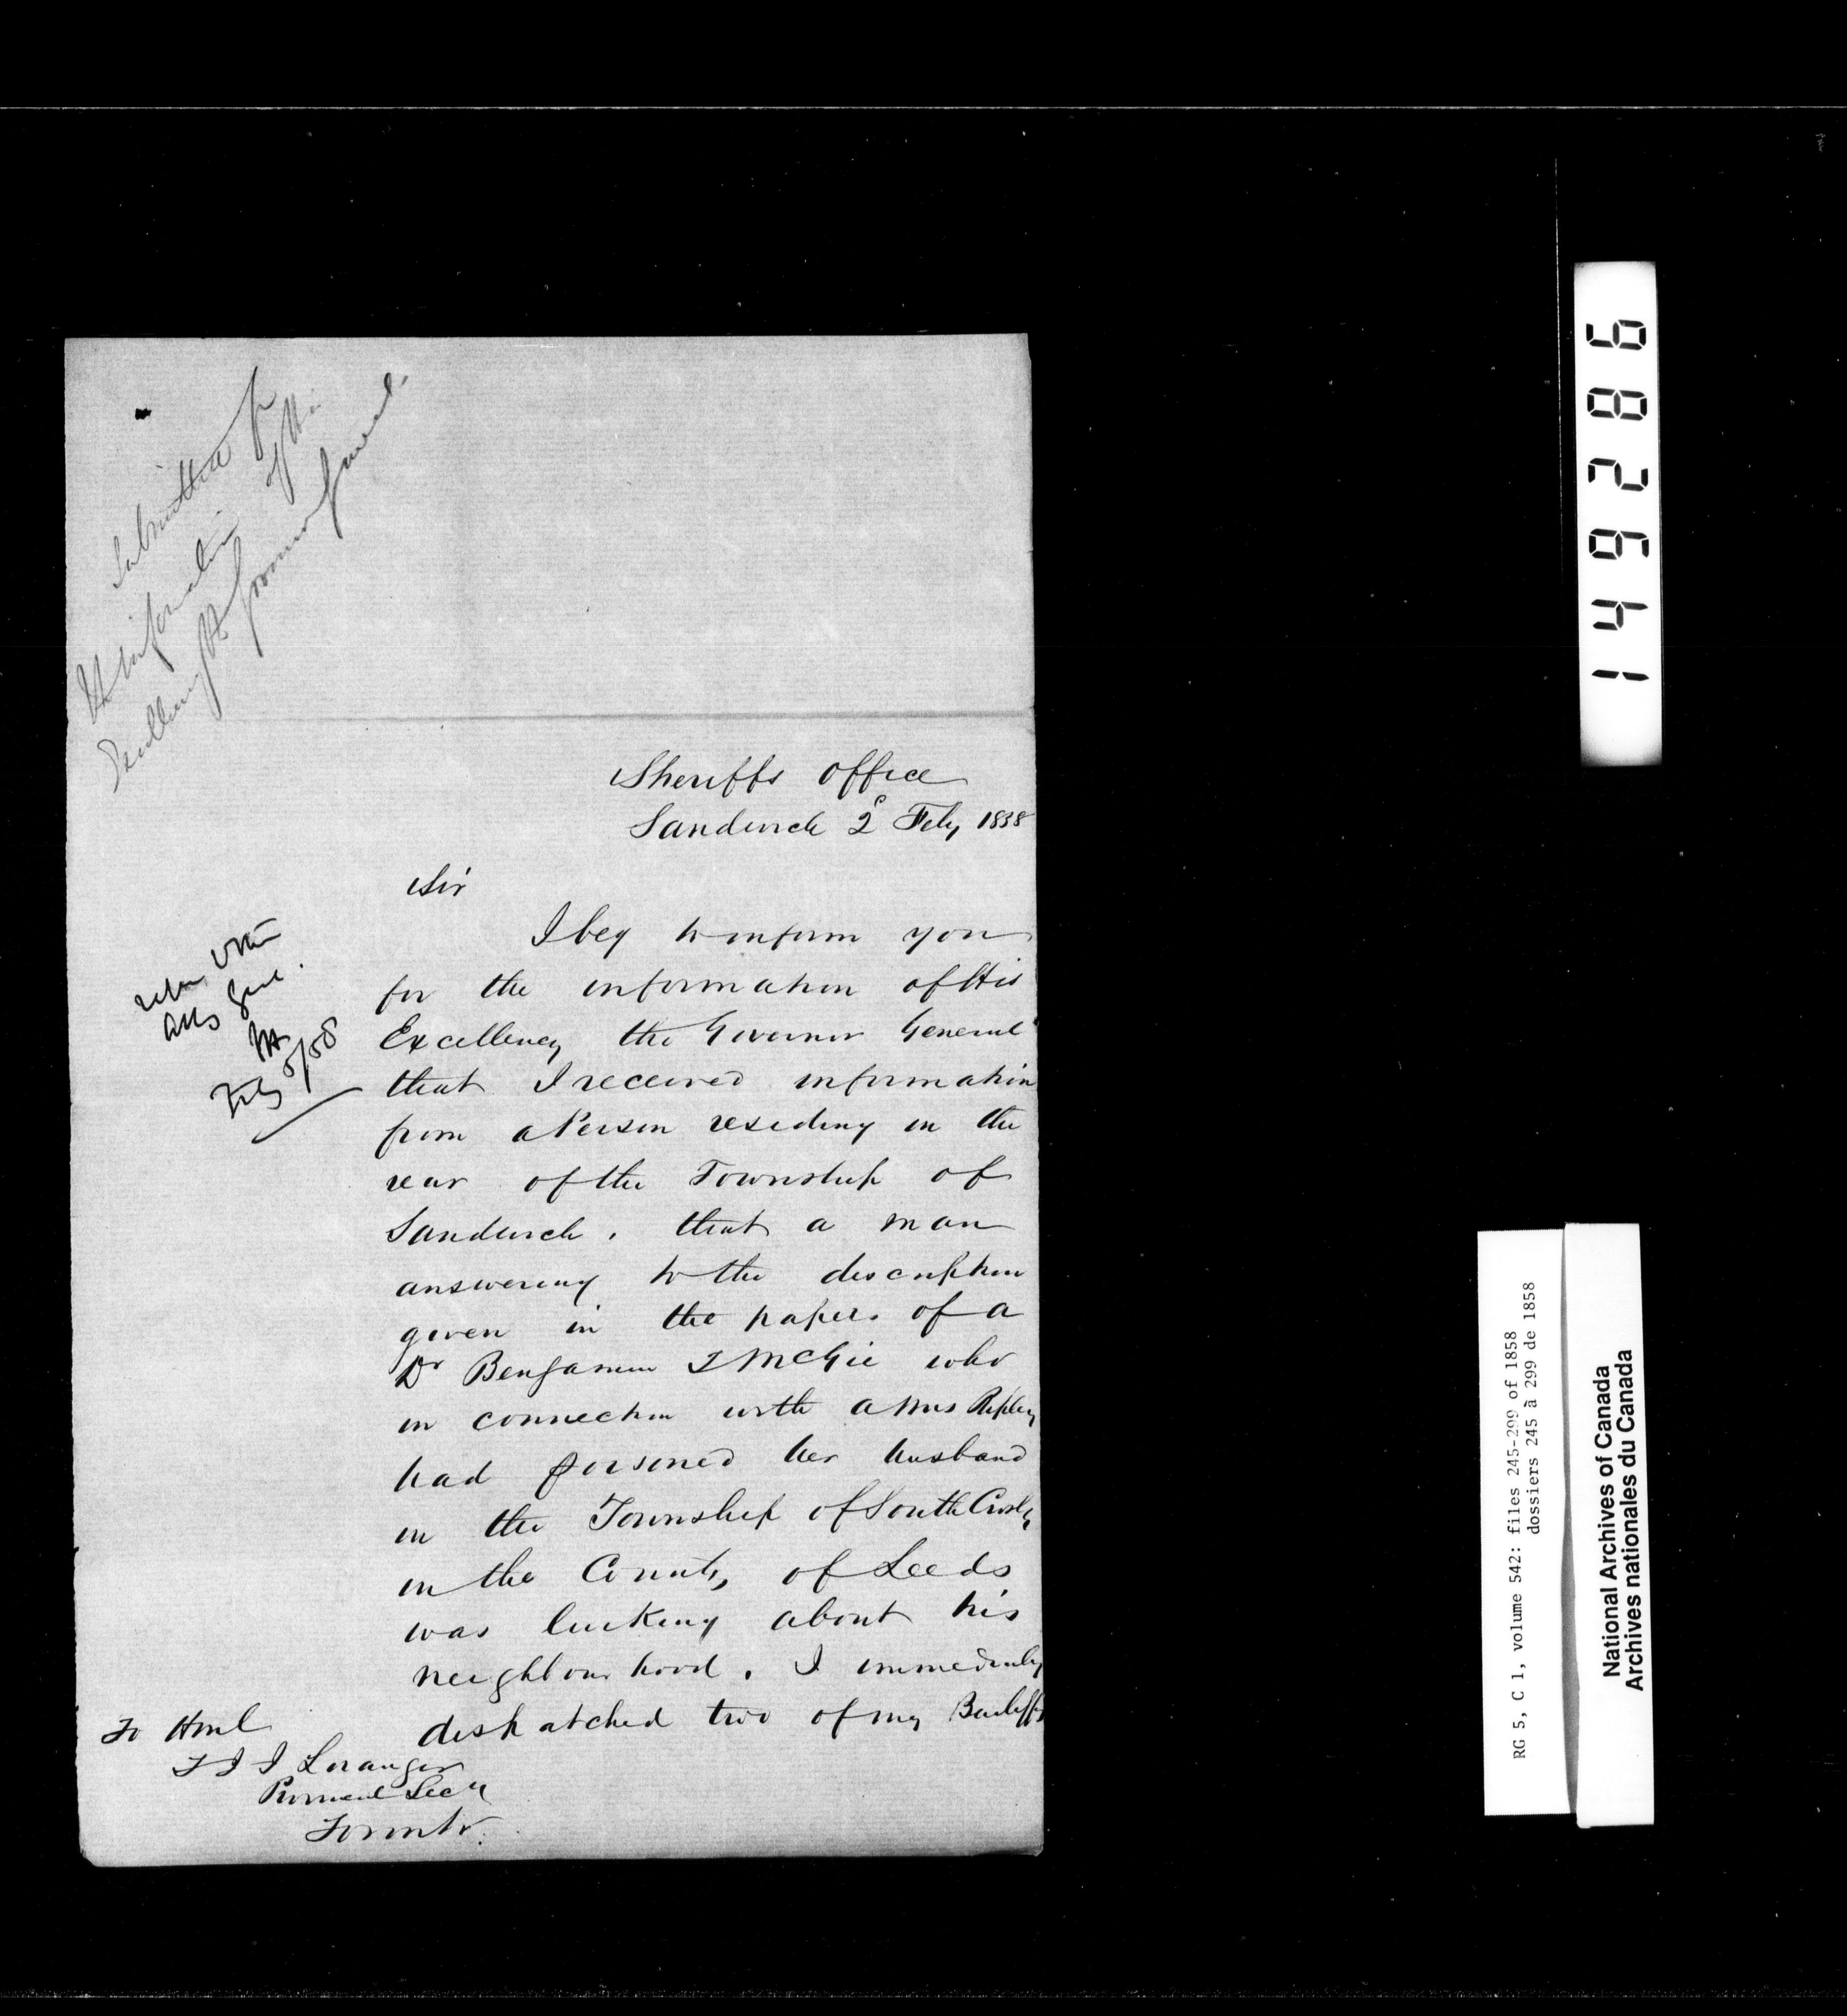 Submitted for
the information of His
Excellency the Governor General.
Sheriffs Office
Sandwich 2d Feby 1858
Sir
I beg to inform you
for the information of His
Excellency the Governor General
that I received information
from a Person residing in the
rear of the Township of
Sandwich. that a man
answering to the description
given in the papers of a
Dr Benjamin J McGie who
in connection with a Mrs Ripley
had poisoned her husband
in the Township of South Crosby
in the County of Leeds
was lurking about his
neighbourhood. I immediately
dispatched two of my Bailiffs
To Honl
T J J Loranger
Provincial Secy
Toronto.
Feby 5/58
149286
RG 5, C 1, volume 542: files 245-299 of 1858
dossiers 245 à 299 de 1858
National Archives of Canada
Archives nationales du Canada